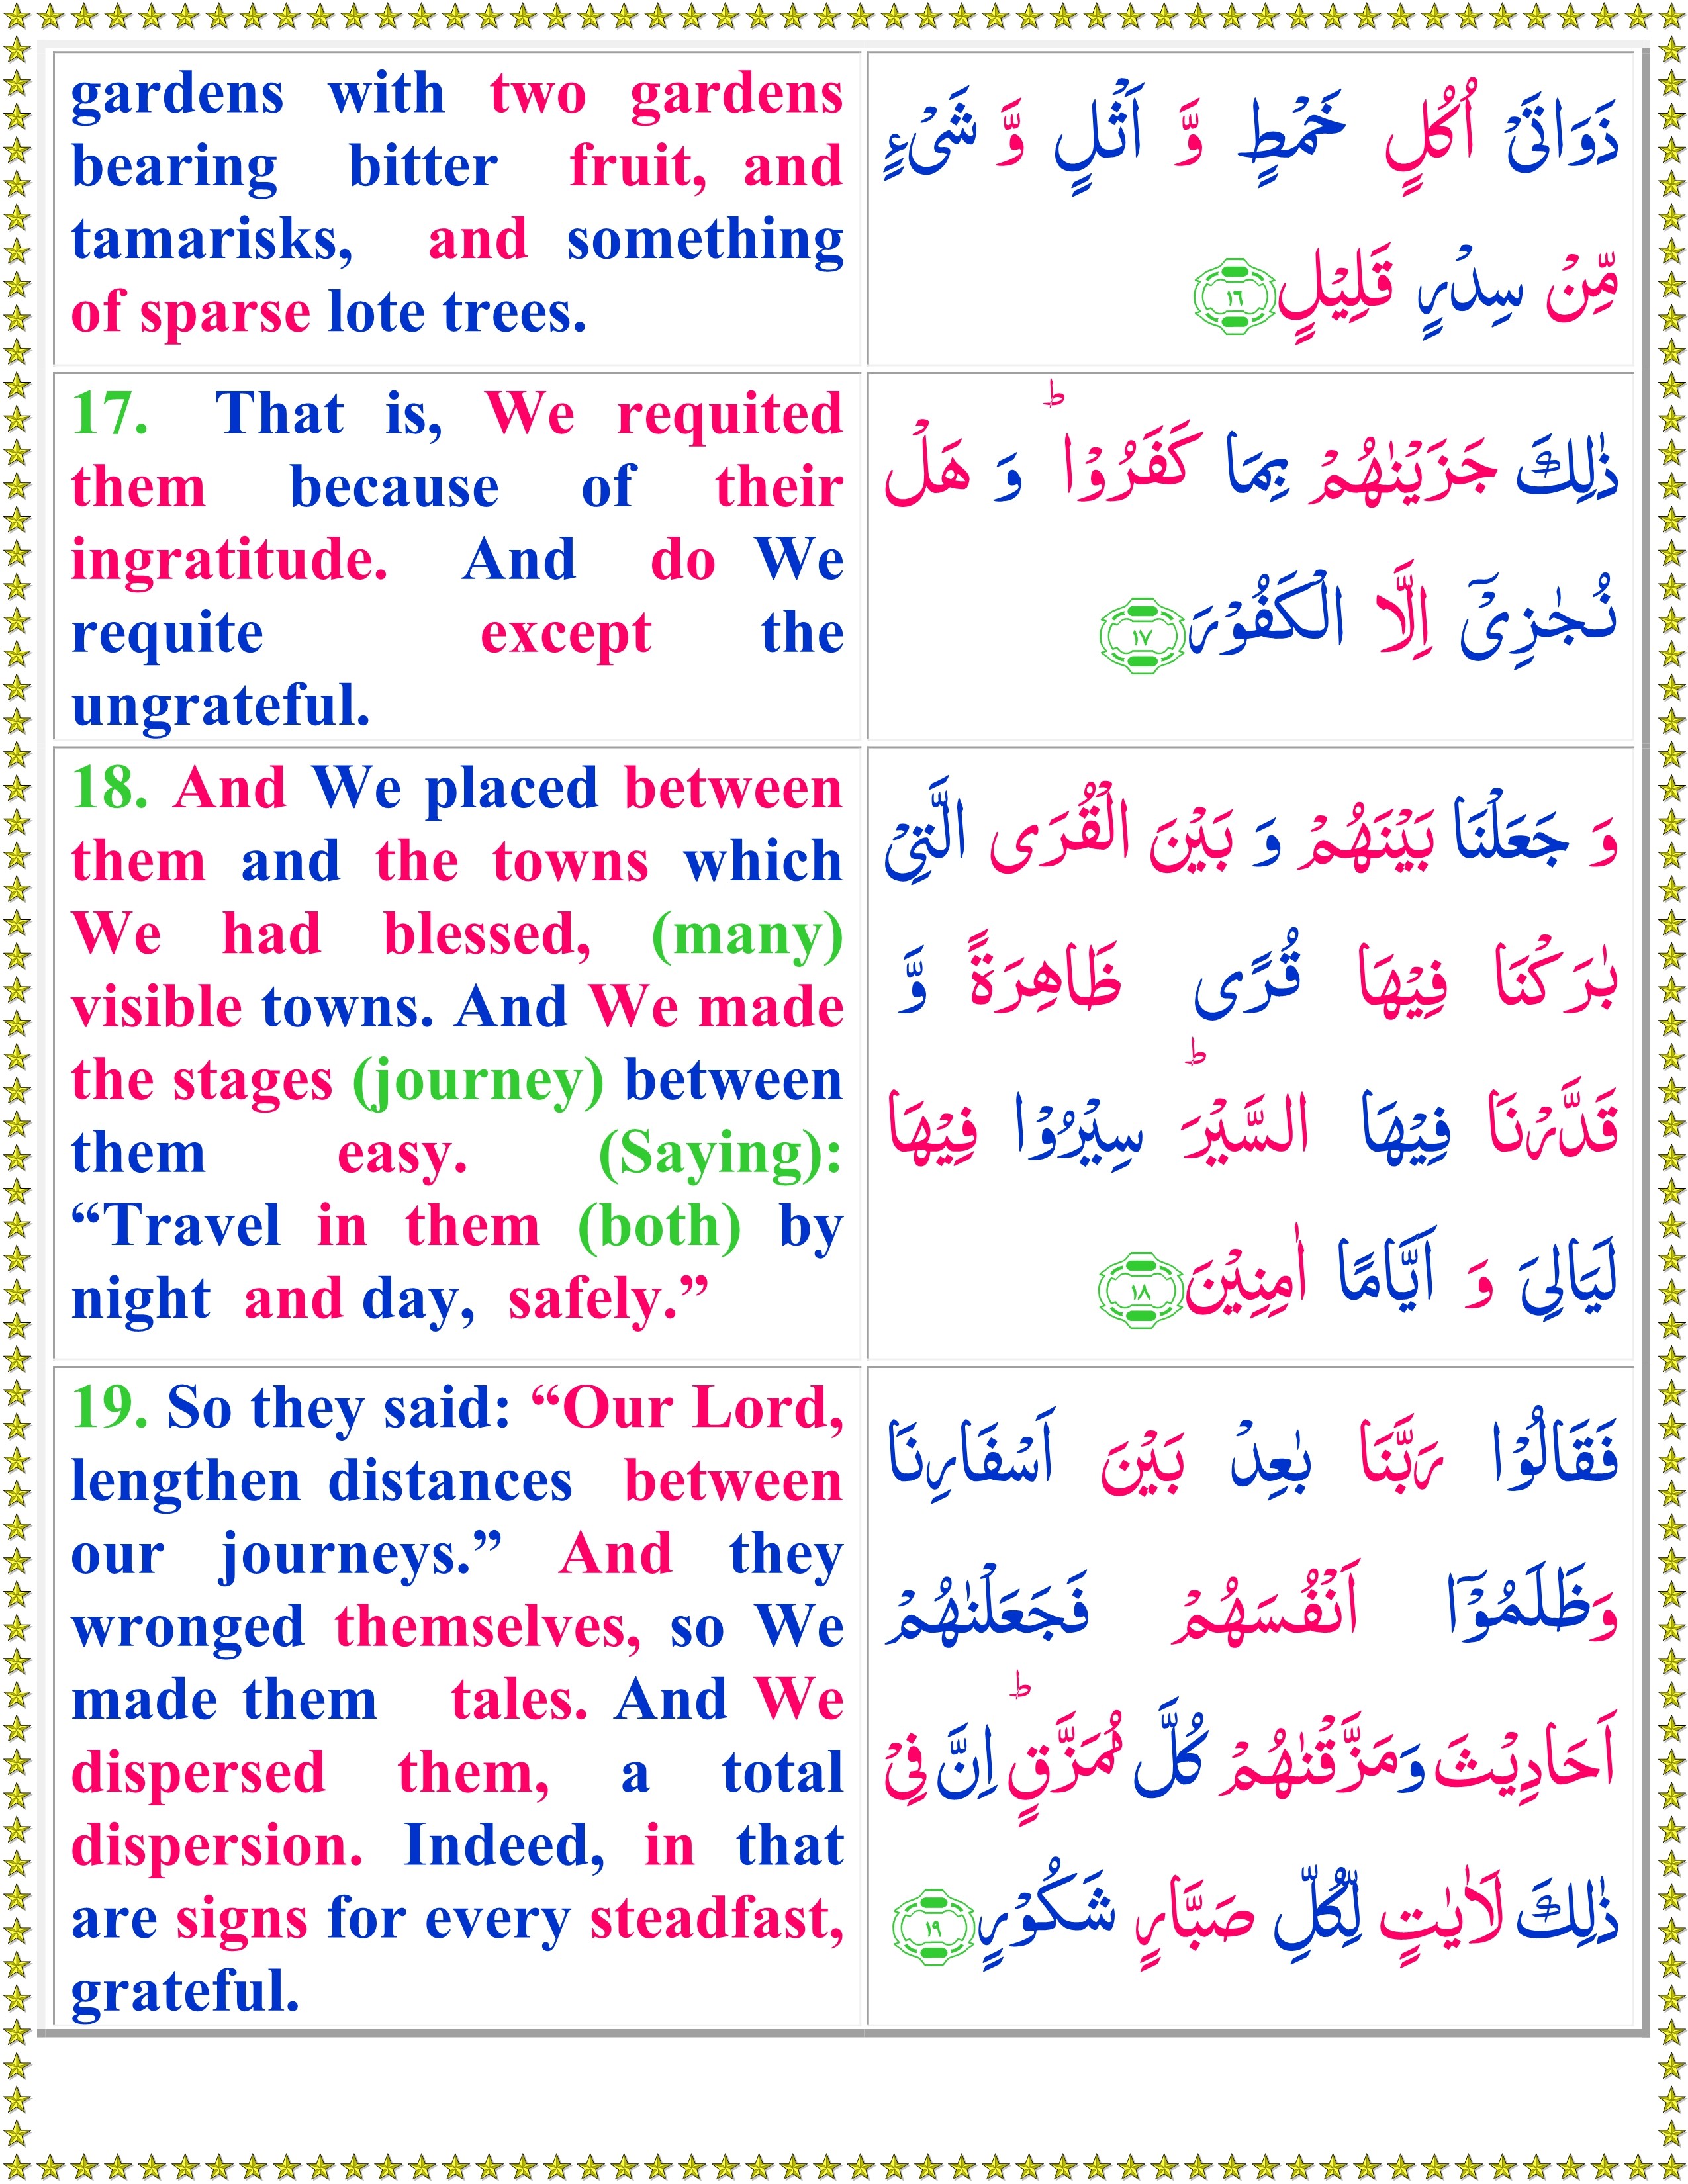 gardens with two gardens
bearing bitter fruit, and
tamarisks, and something
of sparse lote trees.
ذَوَاتَیْ اُكُلٍ خَمْطٍ وَّ اَثْلٍ وَّ شَیْءٍ
مِّنْ سِدْرٍ قَلِیْلٍ ١٦
17. That is, We requited
them because of their
ingratitude. And do We
requite except the
ungrateful.
ذٰلِكَ جَزَیْنٰهُمْ بِمَا كَفَرُوْاؕ وَ هَلْ
نُجٰزِیْۤ اِلَّا الْكَفُوْرَ ١٧
18. And We placed between
them and the towns which
We had blessed, (many)
visible towns. And We made
the stages (journey) between
them easy. (Saying):
“Travel in them (both) by
night and day, safely.”
وَ جَعَلْنَا بَیْنَهُمْ وَ بَیْنَ الْقُرَی الَّتِیْ
بٰرَكْنَا فِیْهَا قُرًی ظَاهِرَةً وَّ
قَدَّرْنَا فِیْهَا السَّیْرَؕ سِیْرُوْا فِیْهَا
لَیَالِیَ وَ اَیَّامًا اٰمِنِیْنَ ١٨
19. So they said: “Our Lord,
lengthen distances between
our journeys.” And they
wronged themselves, so We
made them tales. And We
dispersed them, a total
dispersion. Indeed, in that
are signs for every steadfast,
grateful.
فَقَالُوْا رَبَّنَا بٰعِدْ بَیْنَ اَسْفَارِنَا
وَظَلَمُوْۤا اَنْفُسَهُمْ فَجَعَلْنٰهُمْ
اَحَادِیْثَ وَمَزَّقْنٰهُمْ كُلَّ مُمَزَّقٍؕ اِنَّ فِیْ
ذٰلِكَ لَاٰیٰتٍ لِّكُلِّ صَبَّارٍ شَكُوْرٍ ١٩